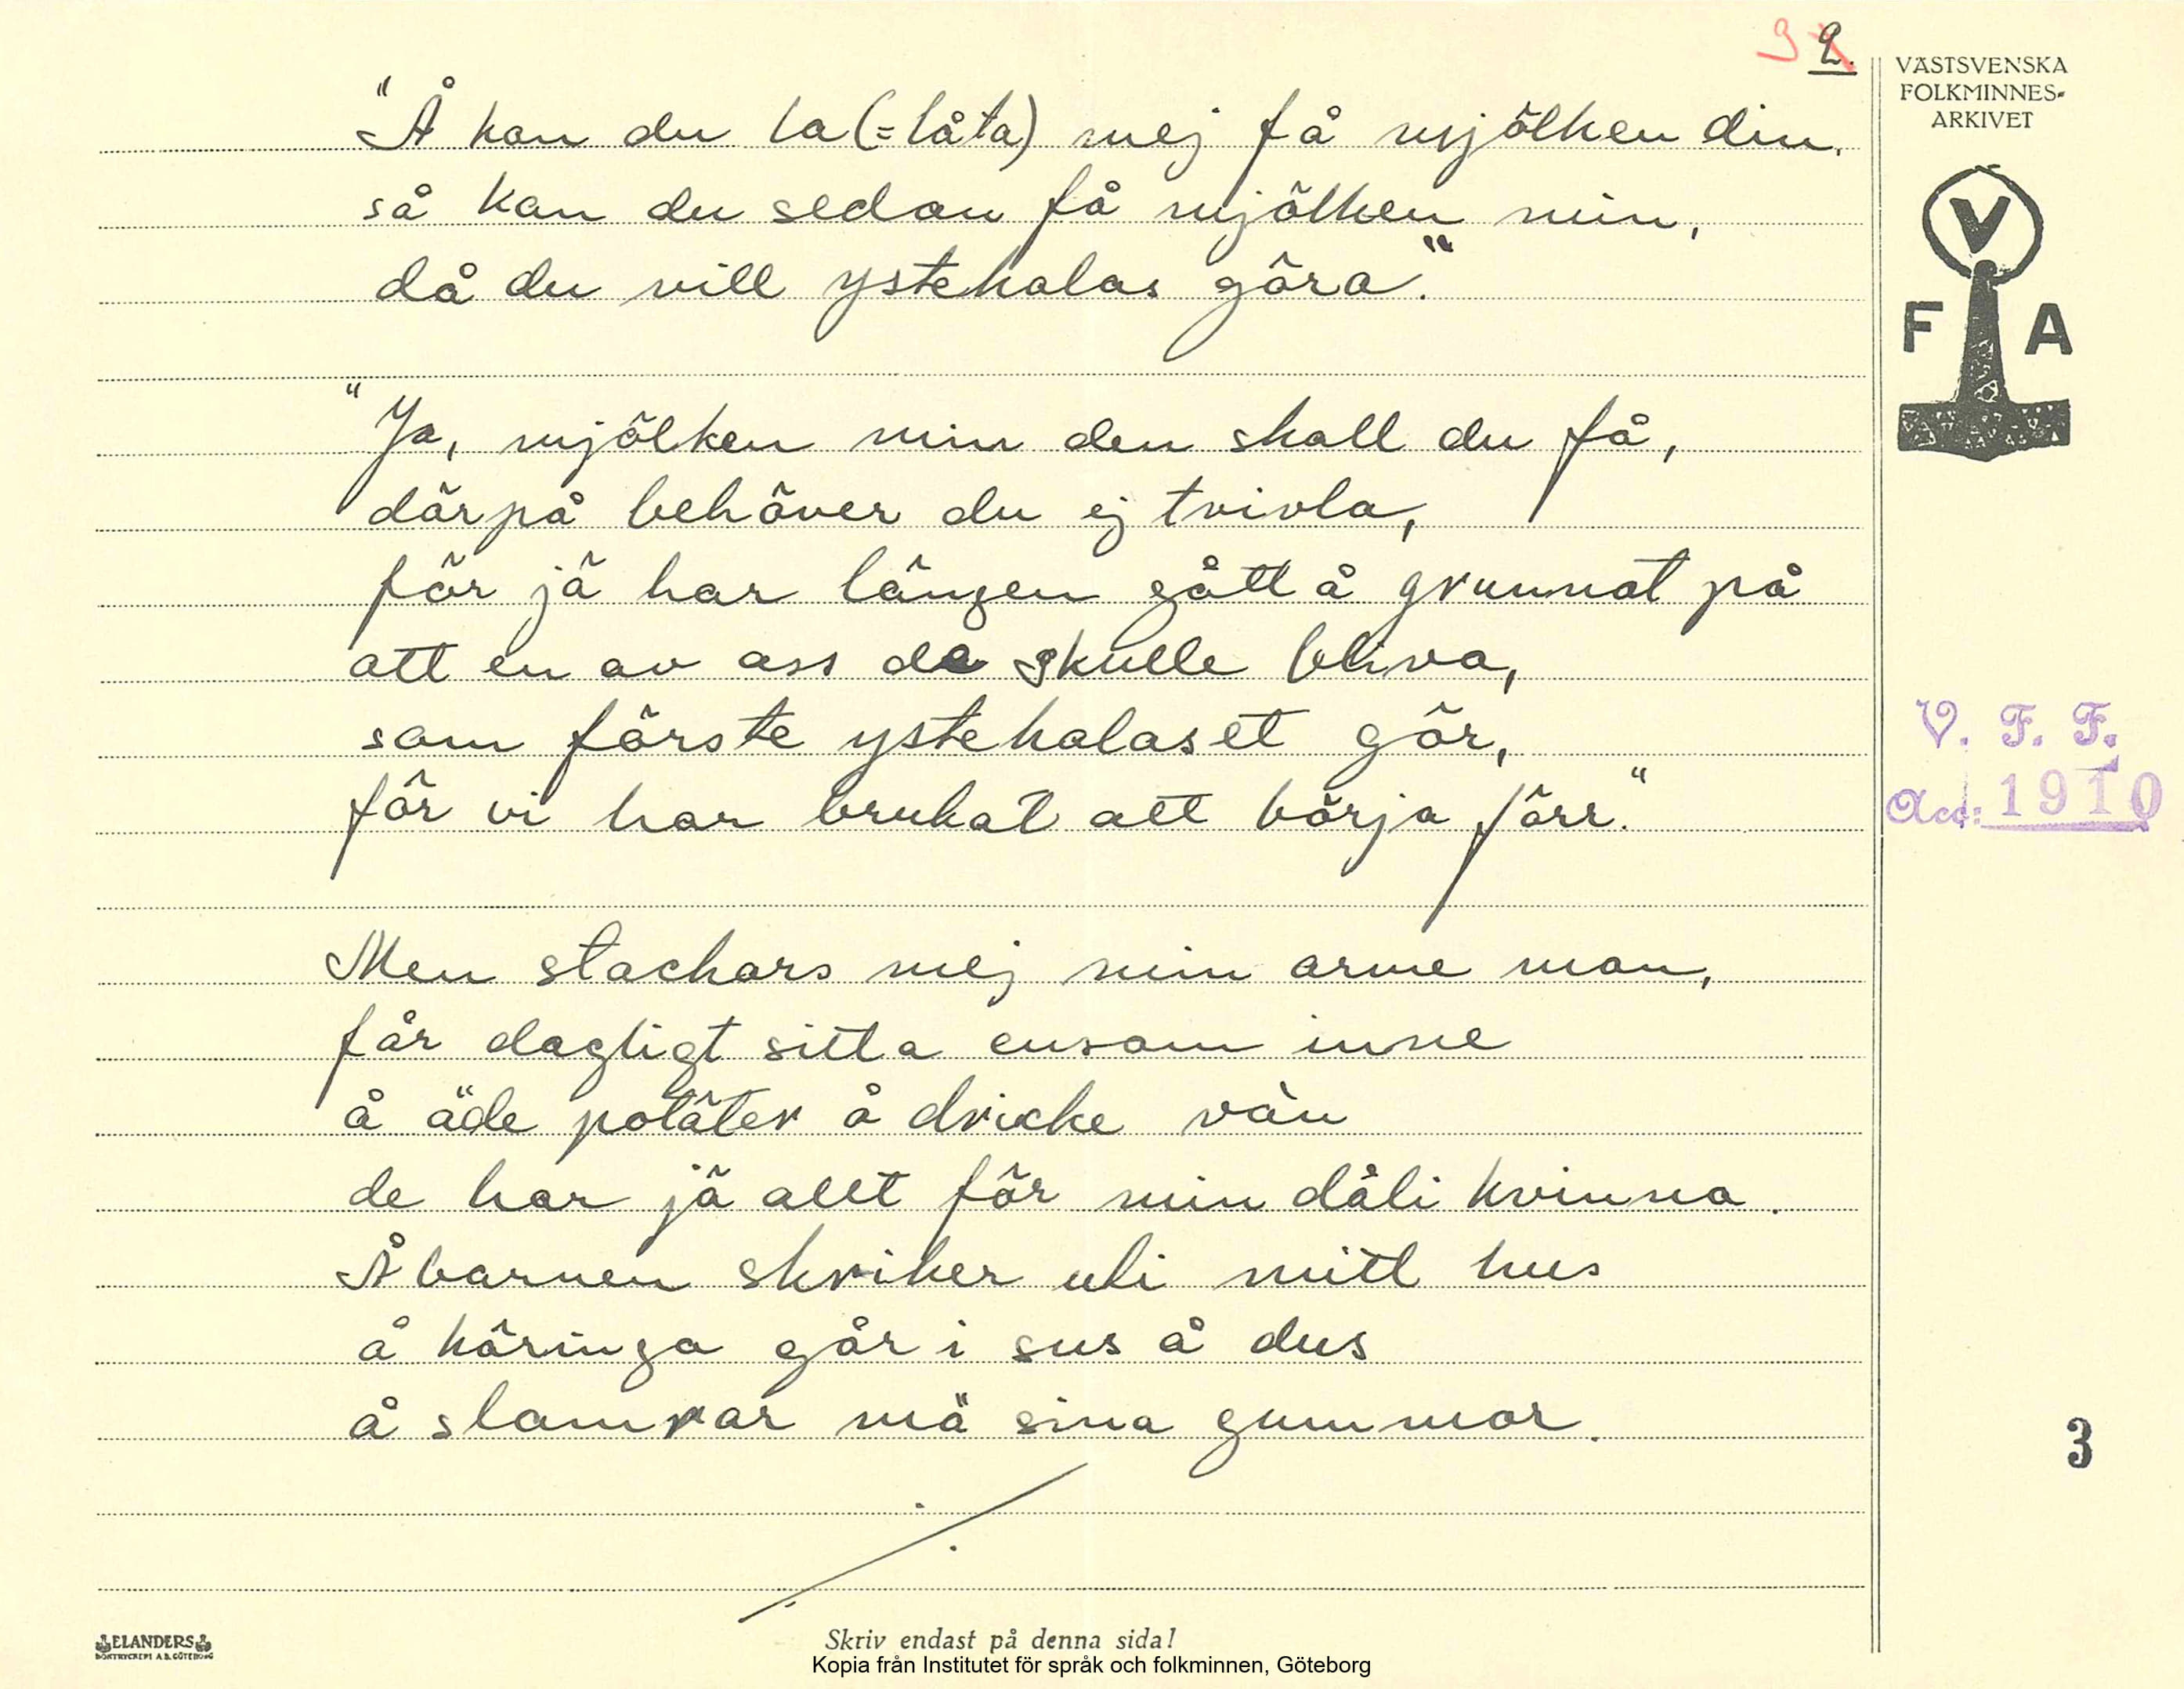 3 2.
VÄSTSVENSKA
FOLKMINNES-
ARKIVET
V
F A
"Å kan du la (= låta) mej få mjölken din,
så kan du sedan få mjölken min,
då du vill ystekalas göra."
"Ja, mjölken min den skall du få,
därpå behöver du ej tvivla,
för jä har längen gått å grunnat på
att en av oss de skulle bliva,
som förste ystekalaset gör,
för vi har brukat att börja förr."
V. F. F.
Acc: 1910
Men stackars mej min arme man,
får dagligt sitta ensam inne
å äde potäter å dricke vàn
de har jä allt för min dåli kvinna.
Å barnen skriker uti mitt hus
å käringa går i sus å dus
å slamrar mä sina gummor.
3
ELANDERS
BOKTRYCKERI A.B. GÖTEBORG
Skriv endast på denna sida!
Kopia från Institutet för språk och folkminnen, Göteborg